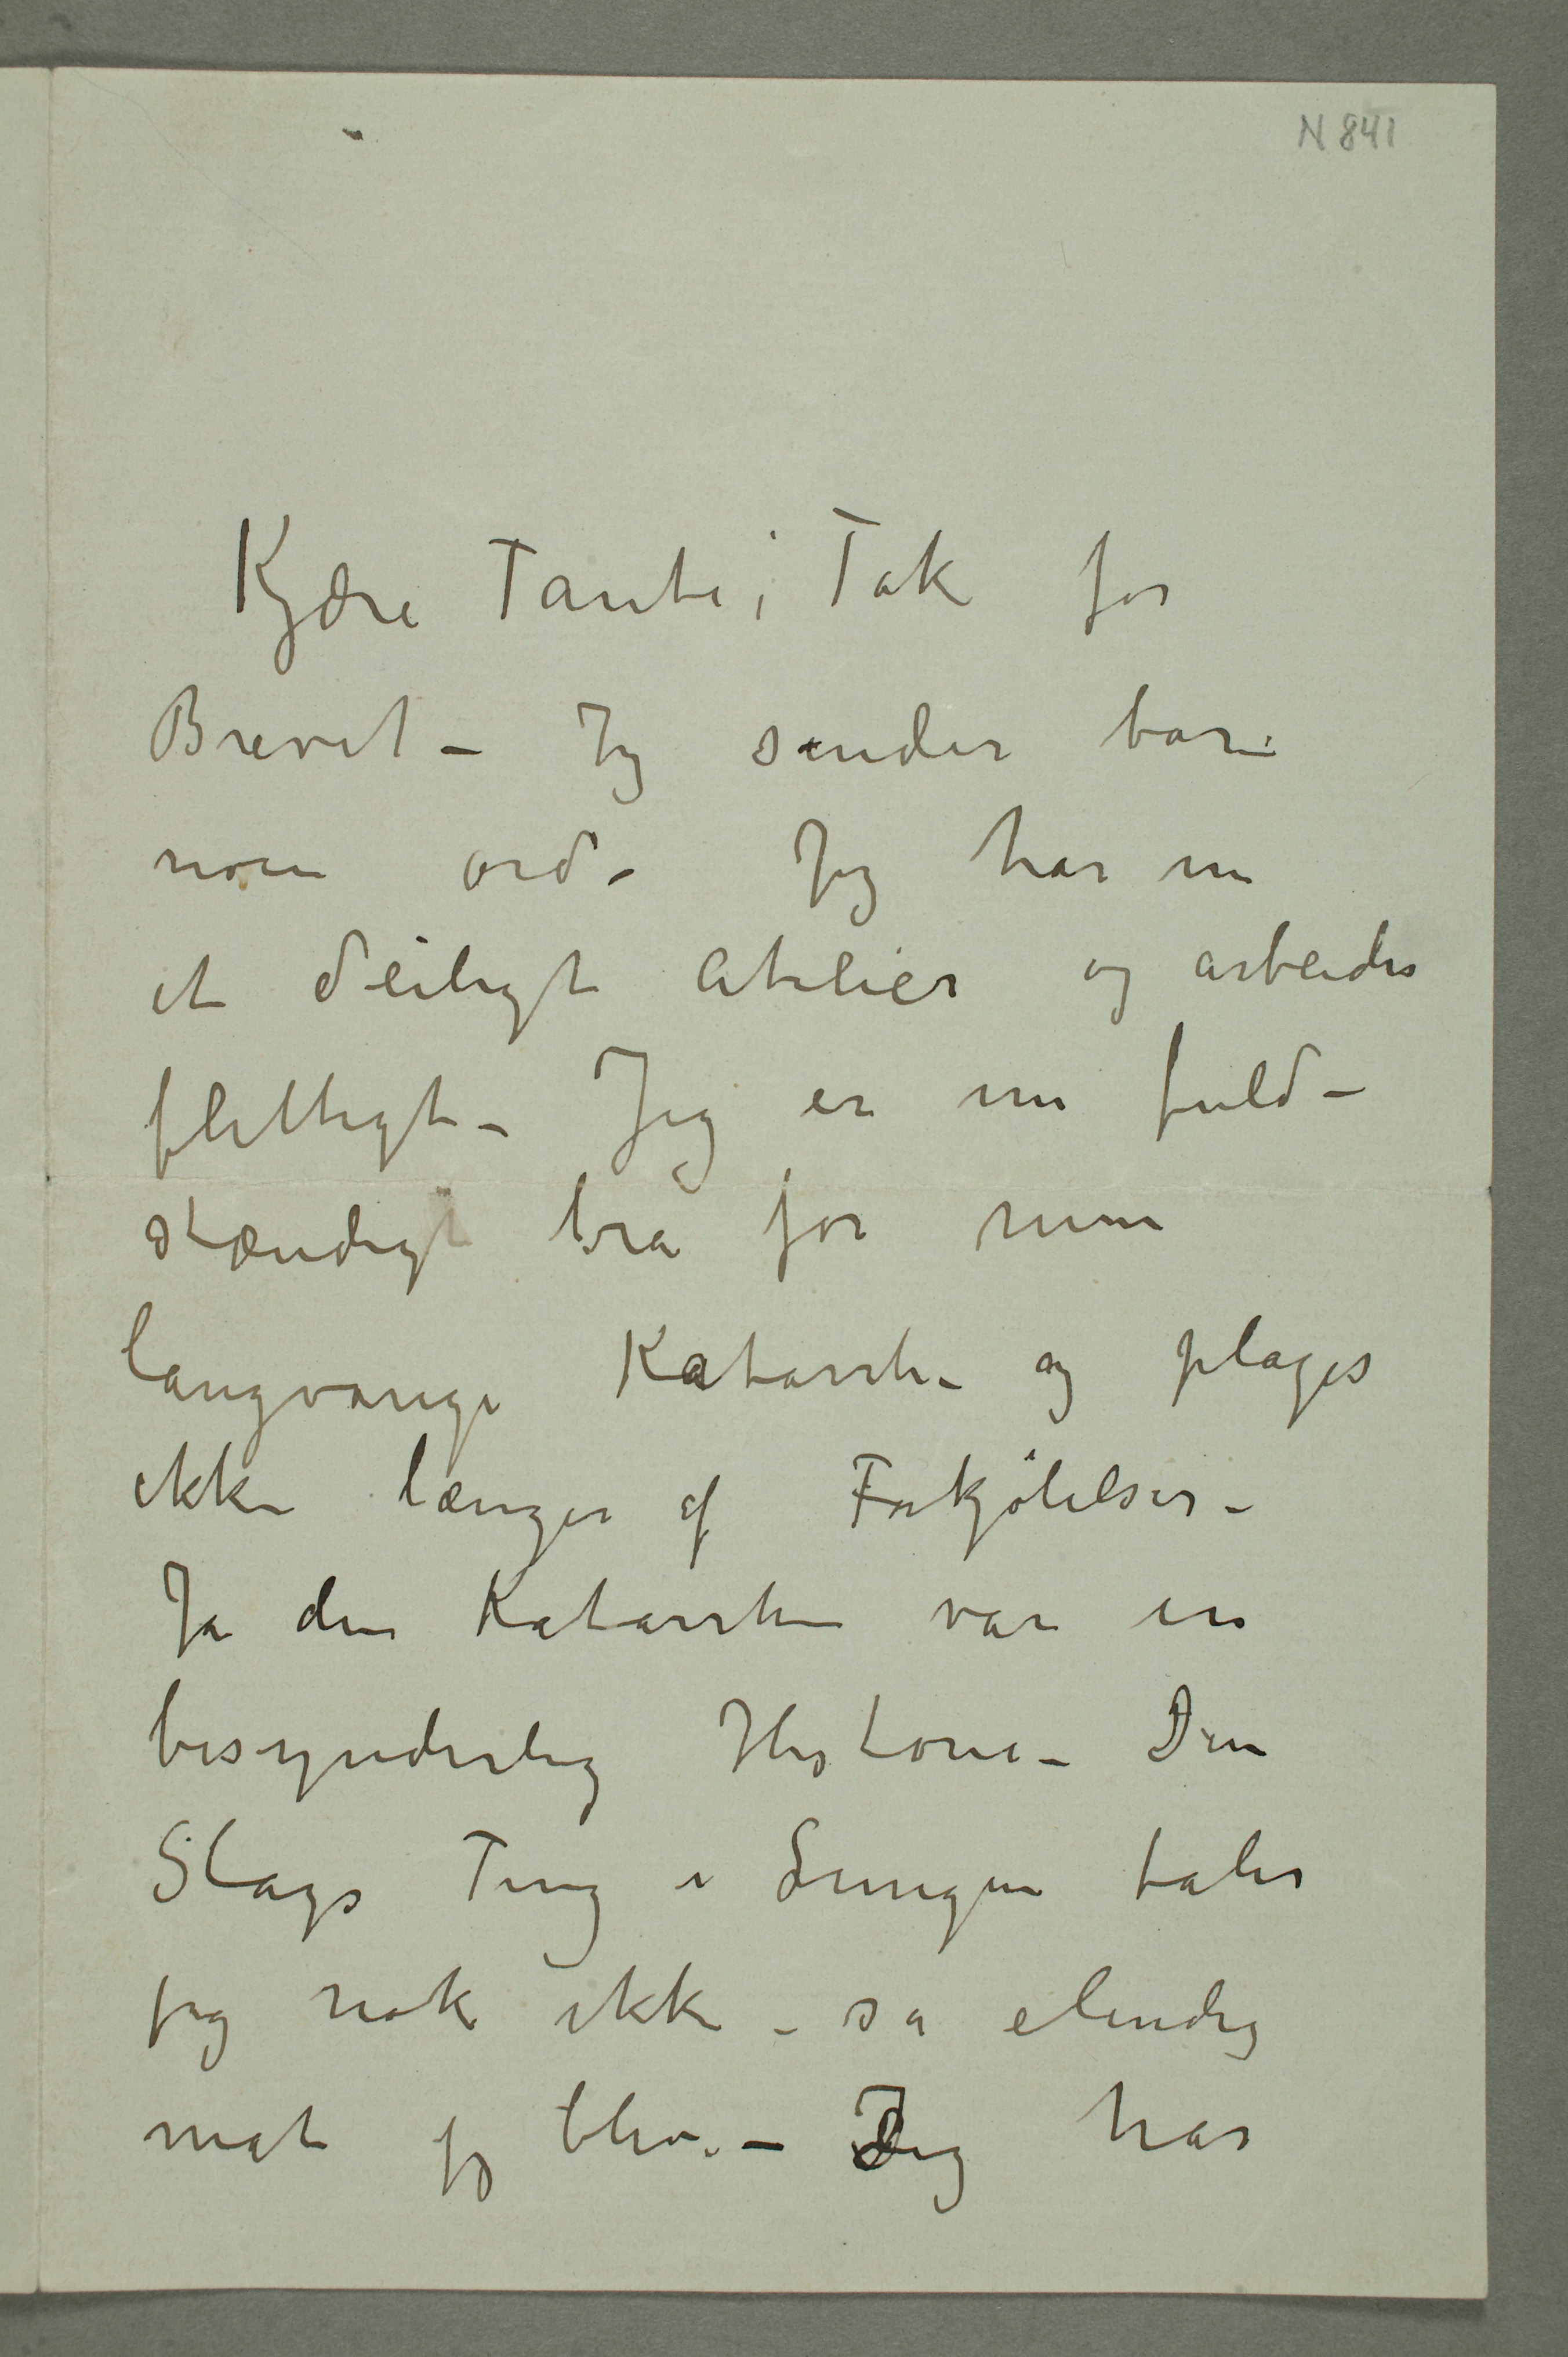 N 841
Kjære Tante; Tak for
Brevet – Jeg sender bare
noen ord – Jeg har nu
et deiligt Atelier og arbeider
flittigt – Jeg er nu fuld-
stændigt bra for min
langvarige Katarrh – og plages
ikke længer af Forkjølelser –
Ja den Katarrhen var en
besynderlig Historie – Den
Slags Ting i Lungen taler
jeg nok ikke – så elendig
mat jeg blev. – Jeg har